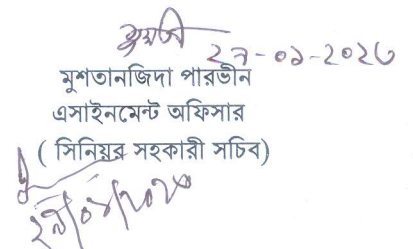 ২৭-০১-২০২৩
মুশতানজিদা পারভীন
এসাইনমেন্ট অফিসার
( সিনিয়র সহকারী সচিব)